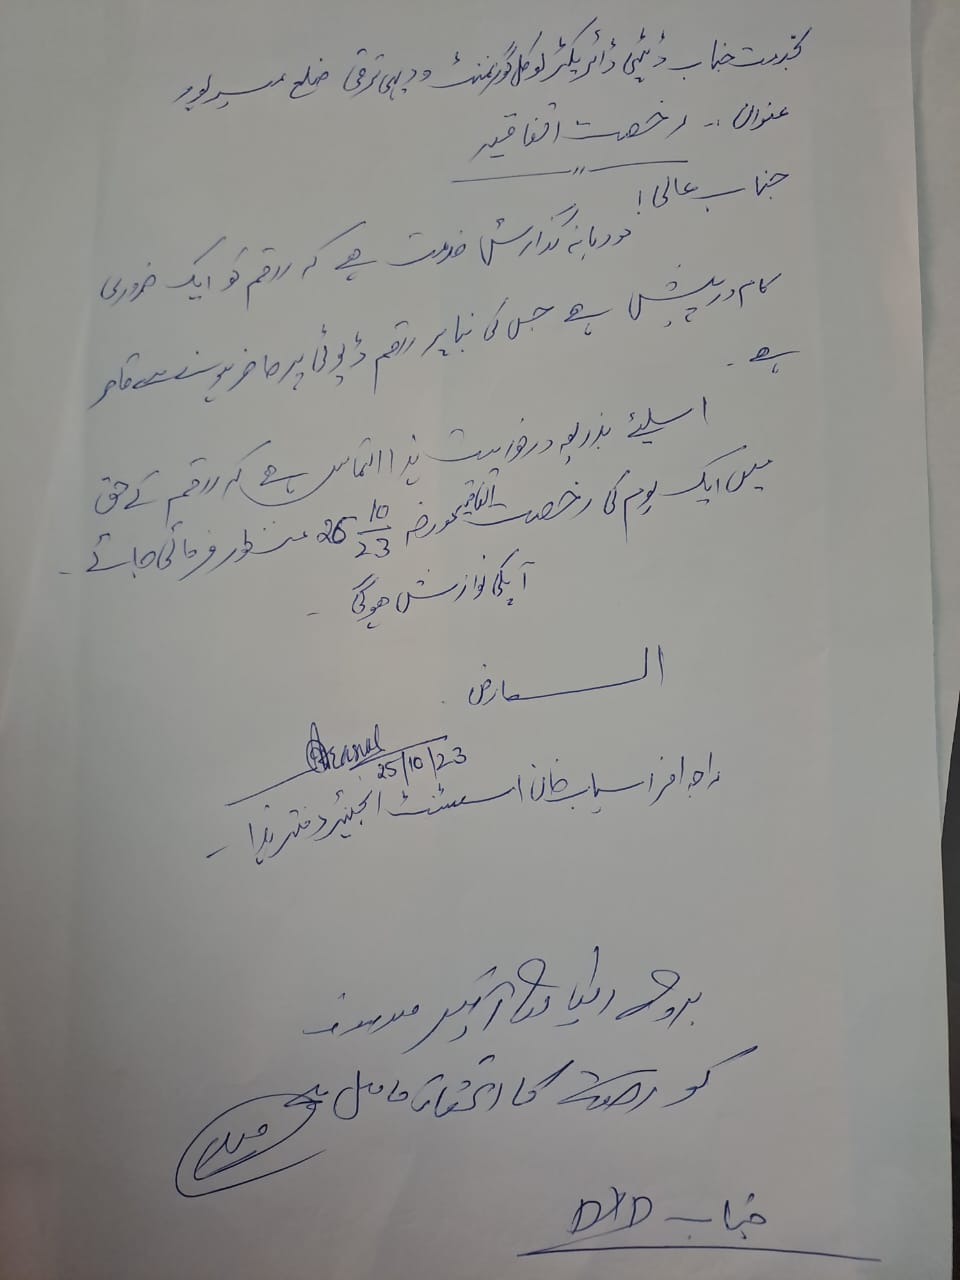 بخدمت جناب ڈپٹی ڈائریکٹر لوکل گورنمنٹ و دیہی ترقی ضلع میرپور
عنوان :۔ رخصت اتفاقیہ
جناب عالی!
مودبانہ گذارش خدمت ہے کہ راقم کو ایک ضروری
کام درپیش ہے جس کی بنا پر راقم ڈیوٹی پر حاضر ہونے سے قاصر
ہے ۔
اسلیئے بذریعہ درخواست ہذا التماس ہے کہ راقم کے حق
میں ایک یوم کی رخصت اتفاقیہ مورخہ 26 10/23 منظور فرمائی جائے ۔
آپکی نوازش ہوگی ۔
العارض
25/10/23
راجہ افراسیاب خان اسسٹنٹ انجینئر دفتر ہذا ۔
بروئے ریکارڈ آفیسر موصوف
کو رخصت کا استحقاق حاصل ہے
جناب DD